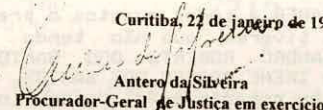 Curitiba, 22 de janeiro de 19
Antero da Silveira
Procurador-Geral de Justiça em exercício